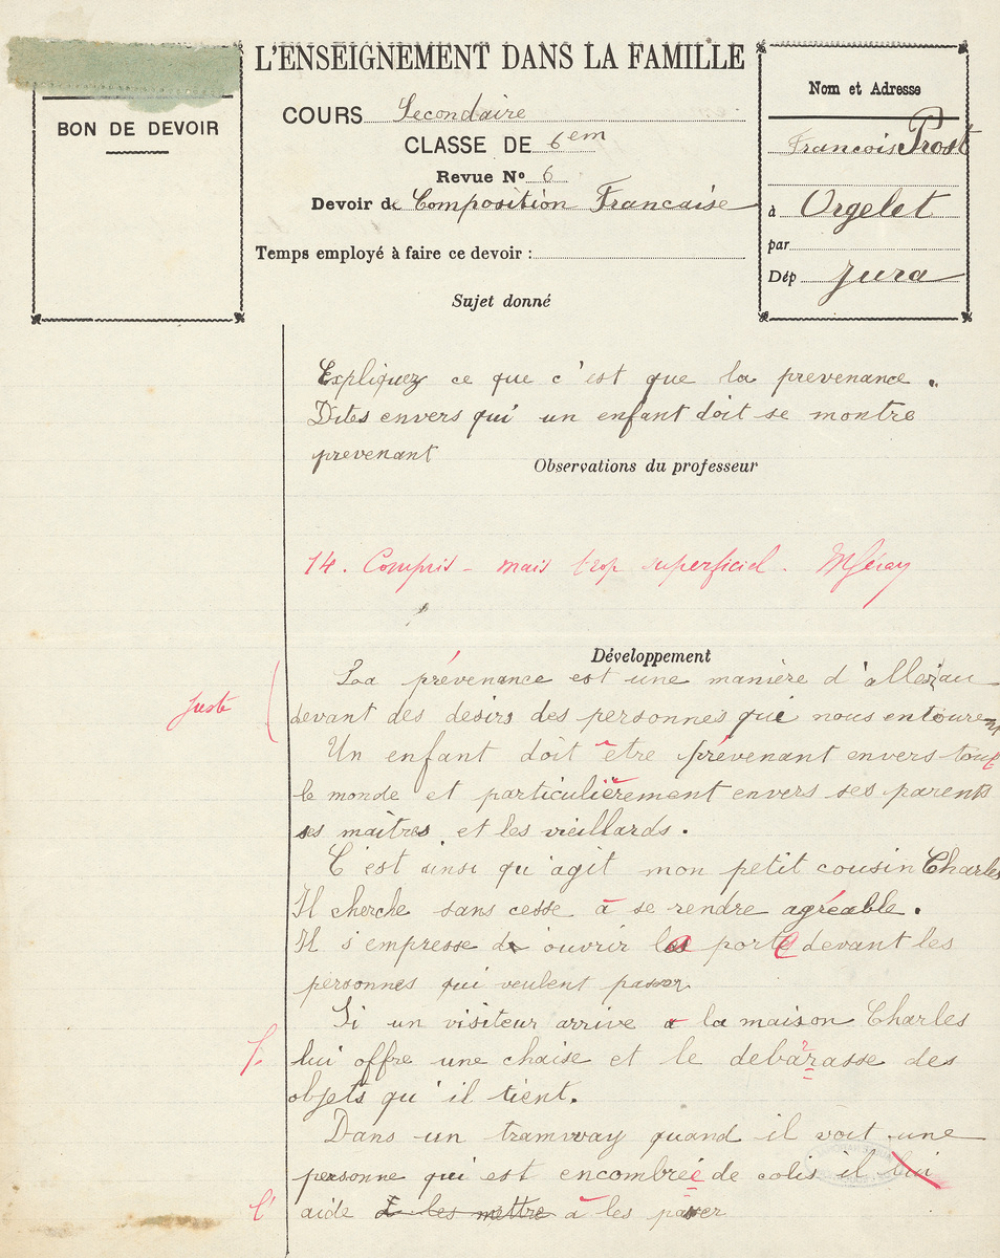 L'ENSEIGNEMENT DANS LA FAMILLE
BON DE DEVOIR
COURS Secondaire
CLASSE DE 6em
Revue No 6
Devoir de Composition Francaise
Temps employé à faire ce devoir :
Nom et Adresse
Francois Prost
à Orgelet
par
Dép Jura
Sujet donné
Expliquez ce que c'est que la prevenance.
Dites envers qui un enfant doit se montre
prevenant
Observations du professeur
14. Compris - mais trop superficiel.
Développement
La prévenance est une manière d'aller au
juste
devant des désirs des personnes qui nous entourent
Un enfant doit être prévenant envers tout
le monde et particulièrement envers ses parents
ses maîtres et les vieillards.
C'est ainsi qu'agit mon petit cousin Charles
Il cherche sans cesse à se rendre agréable.
Il s'empresse d'ouvrir la porte devant les
personnes qui veulent passer
Si un visiteur arrive à la maison Charles
f. lui offre une chaise et le debarrasse des
objets qu'il tient.
Dans un tramway quand il voit une
personne qui est encombrée de colis il lui
l' aide à les mettre à les passer